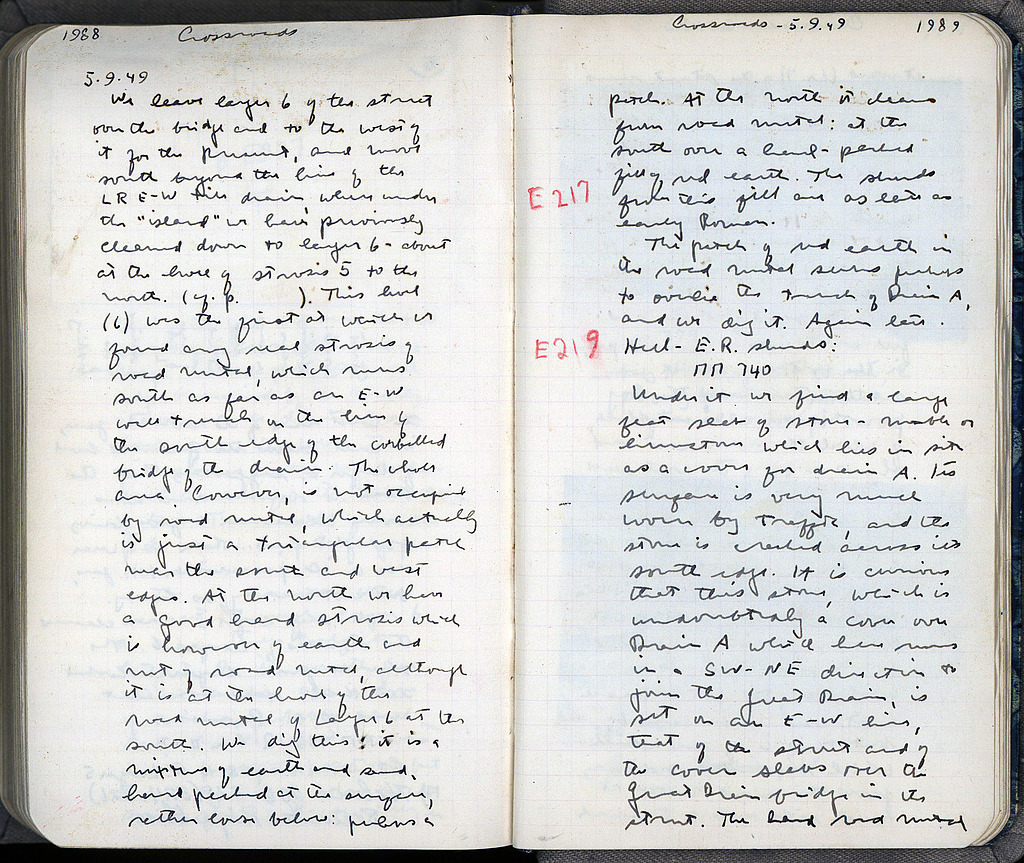 1988 Crossroads
5.9.49
We leave layer 6 of the street
over the bridge and to the west of
it for the present, and move
south beyond the line of the
LR E-W tile drain, where under
the "island" we have previously
cleaned down to layer 6 - about
at the level of strosis 5 to the
north. (cf. p. ). This level
(6) was the first at which we
found any real strosis of
road metal, which runs
south as far as an E-W
wall trench on the line of
the south edge of the corbelled
bridge of the drain. The whole
area however, is not occupied
by road metal, which actually
is just a triangular patch
near the south and west
edges. At the north we have
a good hard strosis which
is however of earth and
not of road metal, although
it is at the level of the
road metal of Layer 6 at the
south. We dig this: it is a
mixture of earth and sand,
hard packed at the surface,
rather loose below: perhaps a
Crossroads - 5.9.49 1989
patch. At the north it cleans
from road metal: at the
south over a hard-packed
fill of red earth. The sherds
E217
from this fill are as late as
early Roman.
The patch of red earth in
the road metal seems perhaps
to overlie the trench of Drain A,
and we dig it. Again late
E219
Hell - E.R. sherds:
ΠΠ 740
Under it we find a large
flat slab of stone - marble or
limestone which lies in situ
as a cover for drain A. Its
surface is very much
worn by traffic, and the
stone is cracked across its
south edge. It is curious
that this stone, which is
undoubtedly a cover over
Drain A which here runs
in a SW-NE direction to
join the Great Drain, is
set on an E-W line,
that of the street and of
the cover slabs over the
Great Drain bridge in the
street. The hard road metal